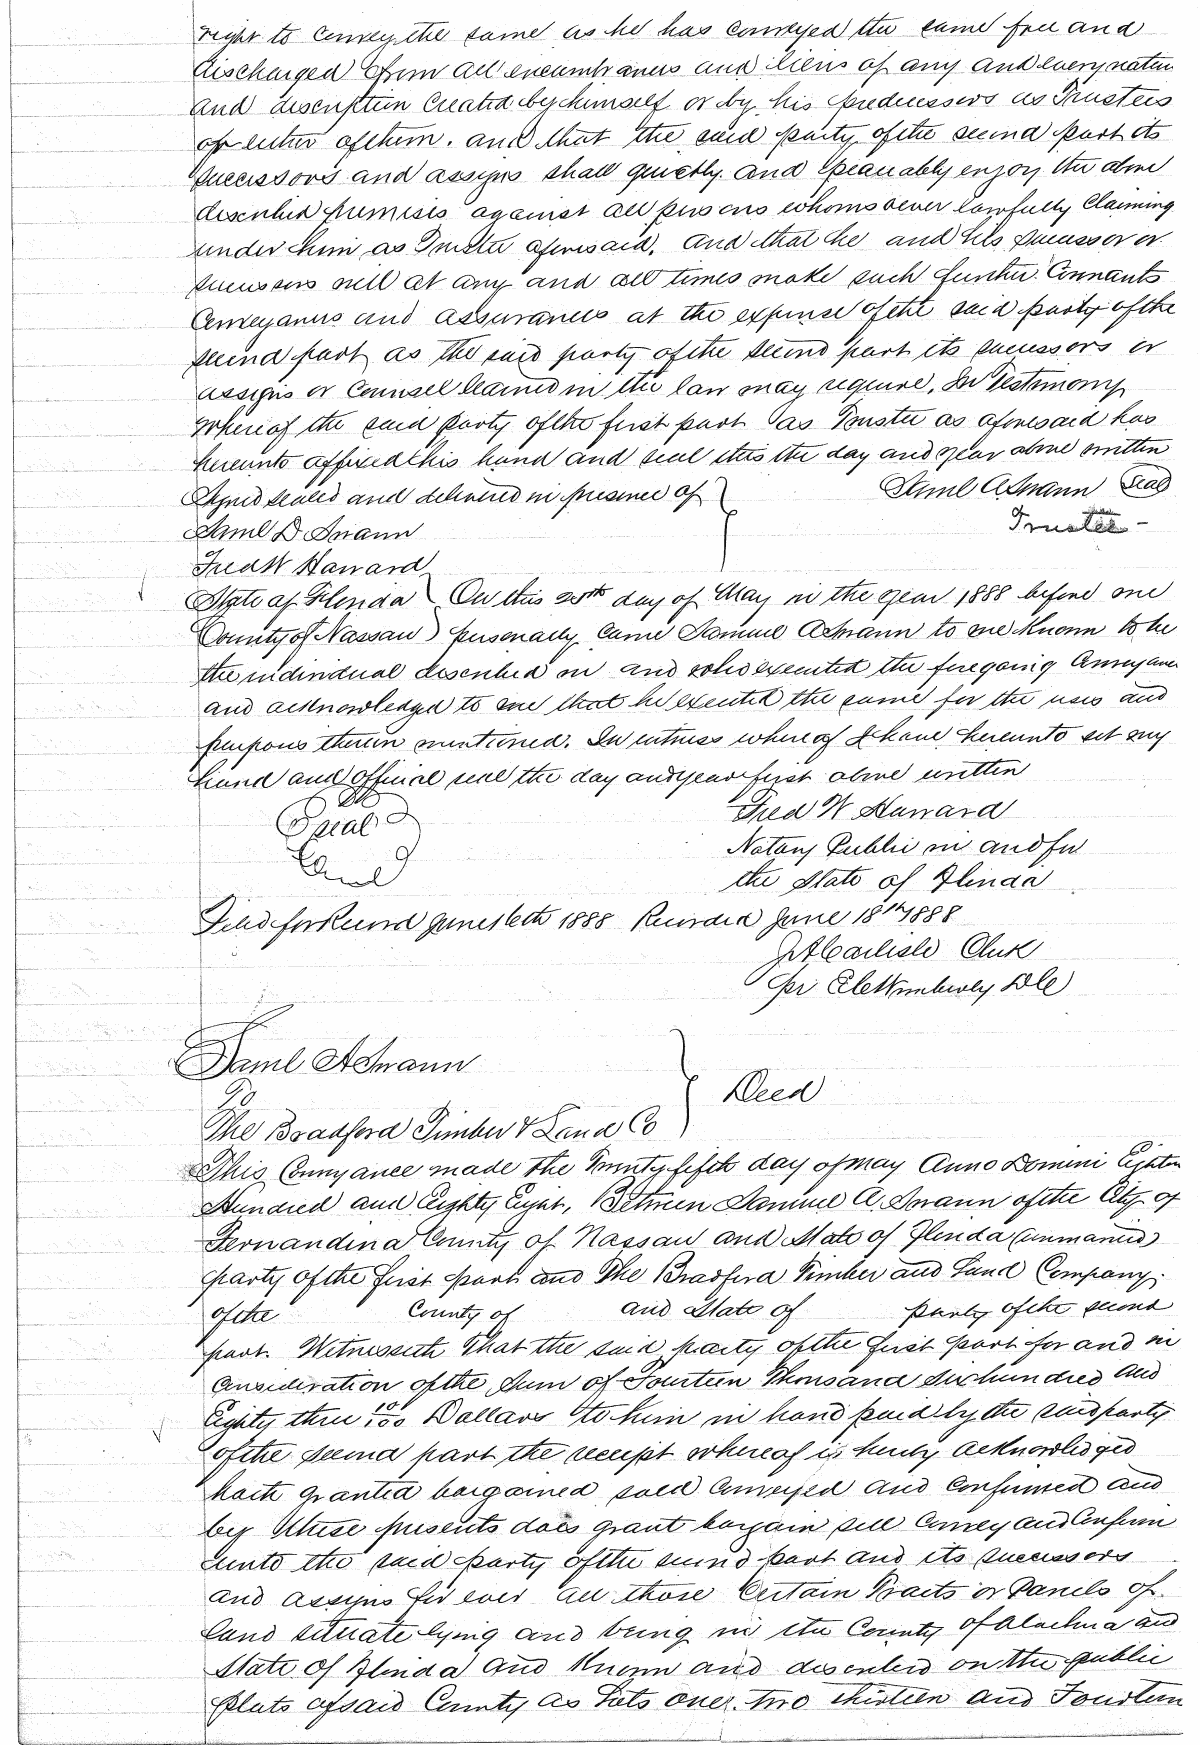 right to convey the same as he has conveyed the same free and
discharged from all encumbrances and liens of any and every natur
and description created by himself or by his predecessors as Trustees
or either of them. and that the said party of the second part its
successors and assigns shall quietly and peaceably enjoy the above
described premises against all persons whomsoever lawfully claiming
under him as Trustee aforesaid. and that he and his successor or
successors will at any and all times make such further Covenants
Conveyances and assurances at the expense of the said party of the
second part as the said party of the second part its successors or
assigns or Counsel learned in the law may require. In Testimony
whereof the said party of the first part as Trustee as aforesaid has
hereunto affixed his hand and seal this the day and year above written
Signed sealed and delivered in presence of } Saml A Swann Seal
Saml D. Swann Trustee -
Fred W Harvard
State of Florida ) On this 25th day of May in the year 1888 before me
County of Nassau ) personally came Samuel A Swann to me known to be
the individual described in and who executed the foregoing Conveyance
and acknowledged to me that he executed the same for the uses and
purposes therein mentioned. In witness whereof I have hereunto set my
hand and official seal the day and year first above written
Seal Fred W Harvard
Notary Public in and for
the State of Florida
Filed for Record June 16th 1888 Recorded June 18th 1888
Carlisle Clerk
Wimberly D C
Saml A Swann
To } Deed
The Bradford Timber & Land Co
This Conveyance made the Twenty fifth day of May Anno Domini Eighteen
Hundred and Eighty Eight, Between Samuel A. Swann of the City of
Fernandina County of Nassau and State of Florida (unmarried)
party of the first part and The Bradford Timber and Land Company
of the County of and State of party of the second
part. Witnesseth that the said party of the first part for and in
Consideration of the sum of Fourteen Thousand six hundred and
Eighty three 10/100 Dollars to him in hand paid by the said party
of the second part the receipt whereof is hereby acknowledged
hath granted bargained sold conveyed and confirmed and
by these presents does grant bargain sell convey and confirm
unto the said party of the second part and its successors
and assigns for ever all those Certain Tracts or Parcels of
Land situate lying and being in the County of Alachua and
State of Florida and known and described on the public
Plats of said County as Lots one. two thirteen and Fourteen